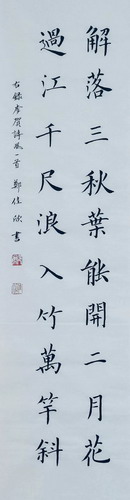 解落三秋葉能開二月花
過江千尺浪入竹萬竿斜
右錄李賀詩風一首 鄭佳欣書